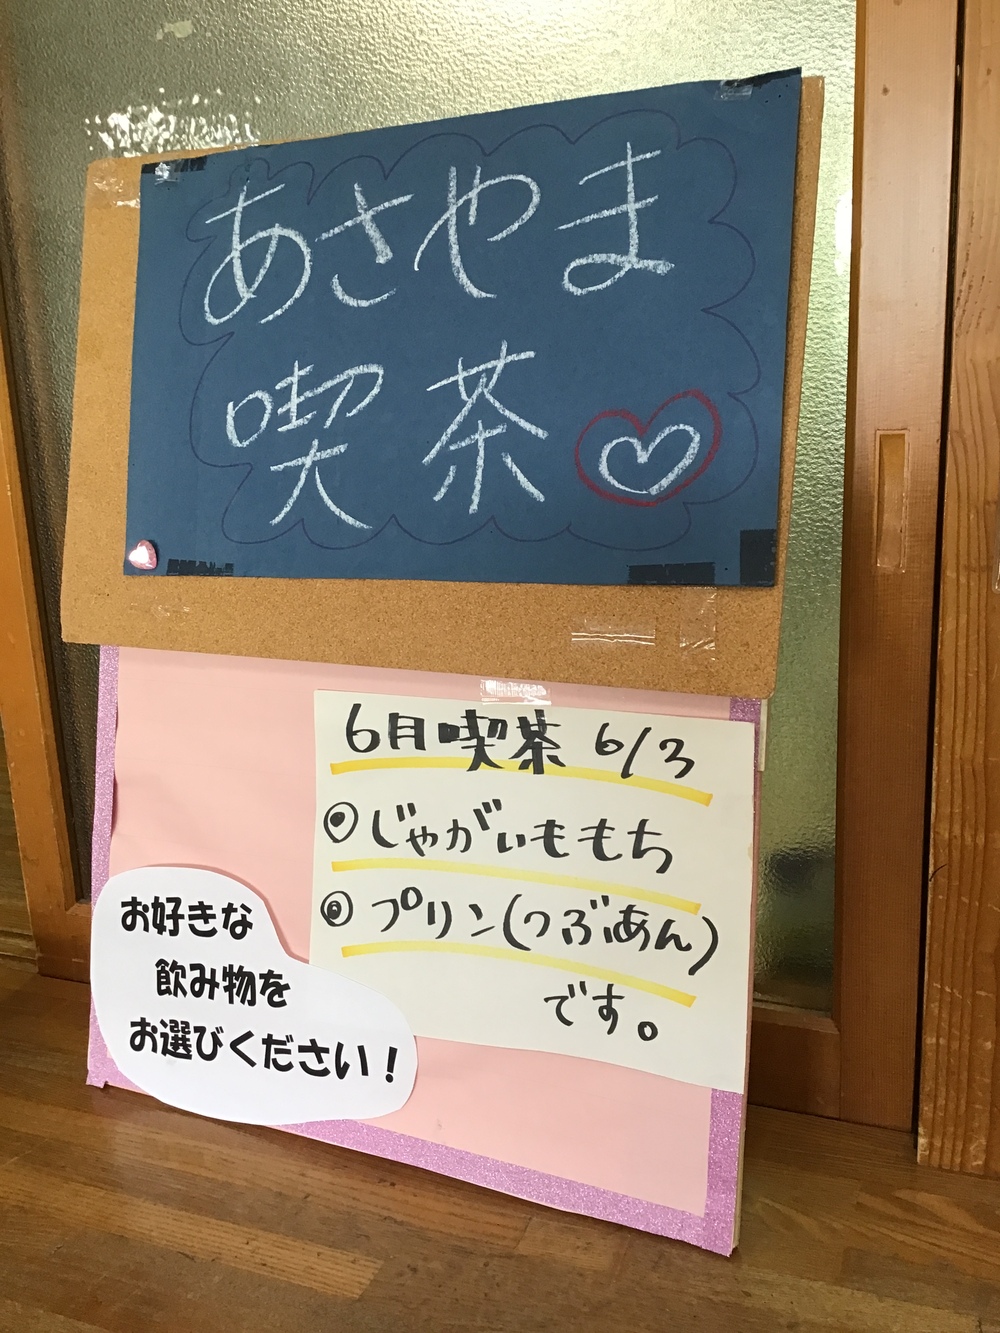 あさやま
喫茶
6月喫茶 6/3
◎じゃがいももち
◎プリン(つぶあん)
です。
お好きな
飲み物を
お選びください！